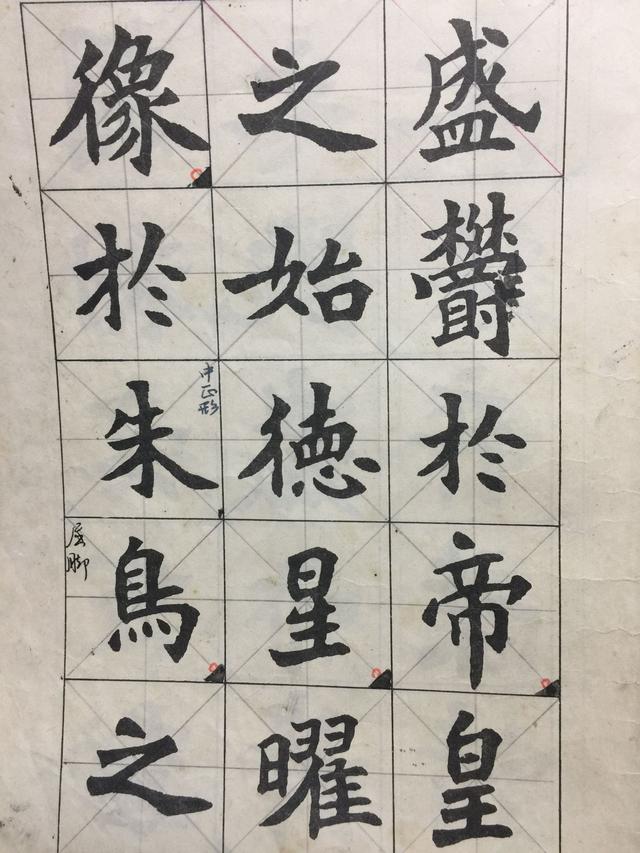 盛欝於帝皇
之始德星曜
像於朱鳥之
中正形
屈脚